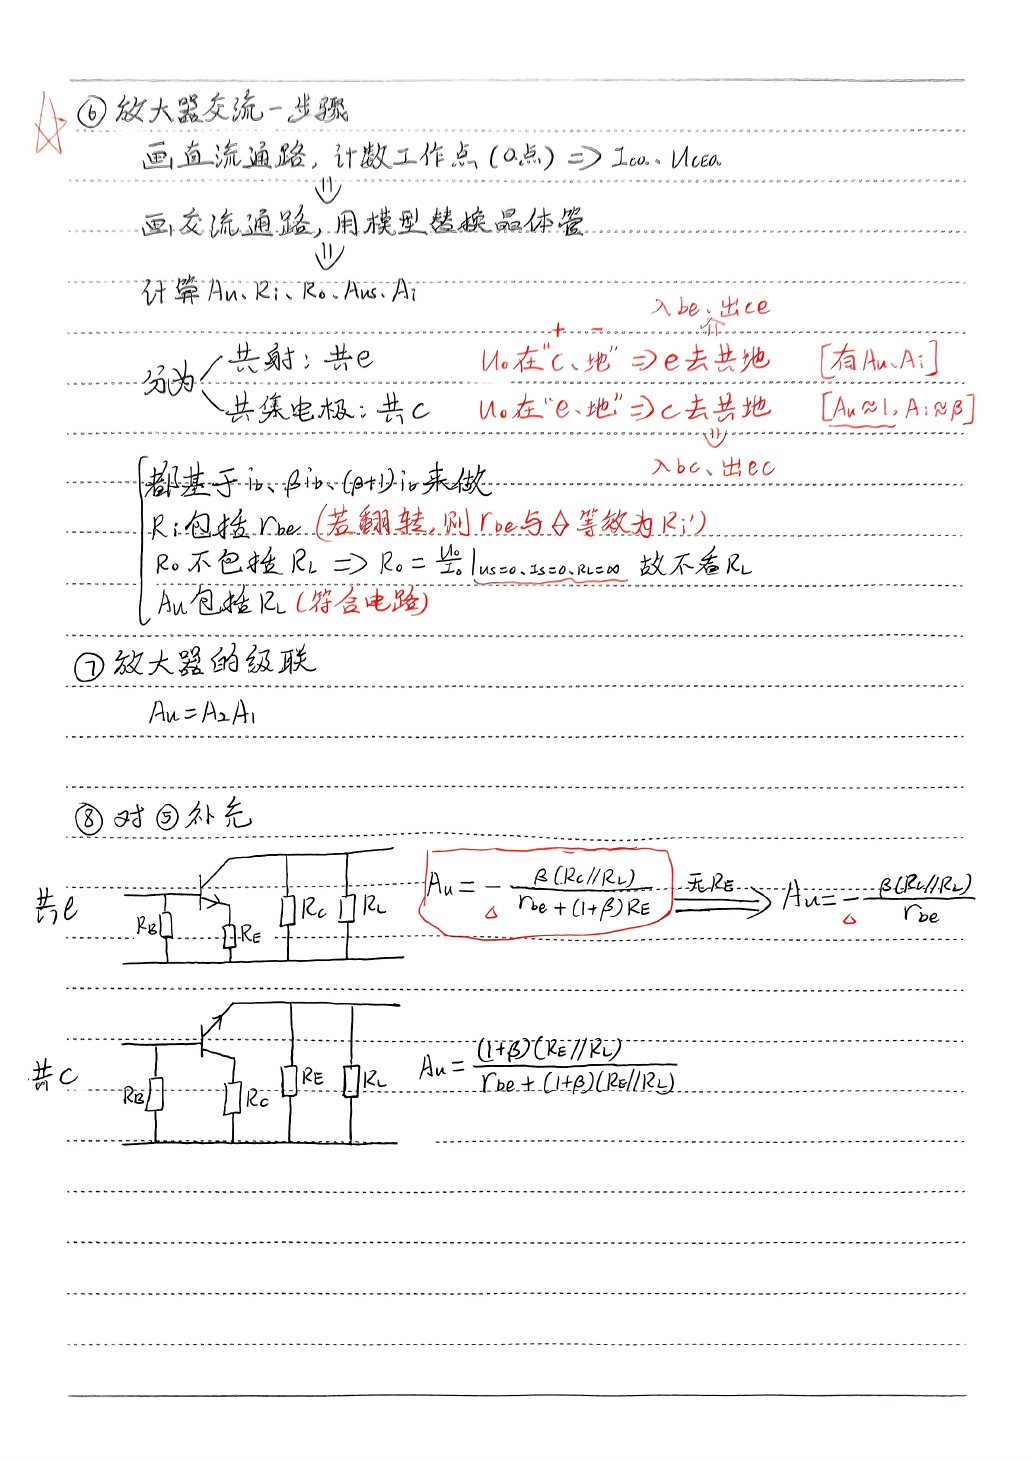 ☆ ⑥ 放大器交流一步骤
画直流通路, 计数工作点 (Q点) => ICQ、UCEQ
画交流通路, 用模型替换晶体管
计算 Au、Ri、Ro、Aus、Ai
入be、出ce
+ −
分为
共射: 共e Uo在"c、地" => e去共地 [有Au、Ai]
共集电极: 共c Uo在"e、地" => c去共地 [Au≈1, Ai≈β]
入bc、出ec
都基于 ib、βib、(β+1)ib来做
Ri包括rbe (若翻转, 则rbe与◇等效为Ri')
Ro不包括RL => Ro = Uo/Io |US=0、IS=0、RL=∞ 故不看RL
Au包括RL (符合电路)
⑦ 放大器的级联
Au=A2A1
⑧ 对⑤补充
共e RB RE RC RL Au = − β(RC//RL) / rbe+(1+β)RE 无RE => Au = − β(RC//RL) / rbe
共c RB RC RE RL Au = (1+β)(RE//RL) / rbe+(1+β)(RE//RL)